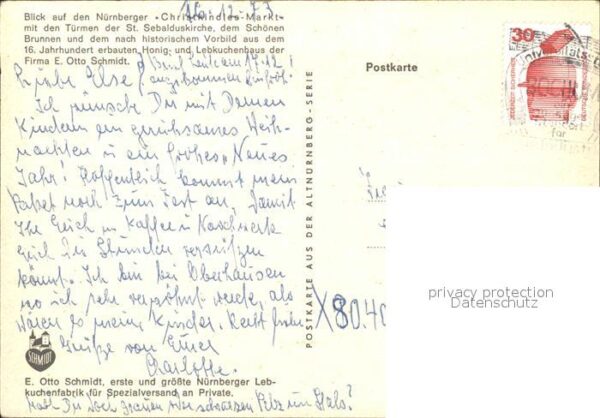 16.12.73
Blick auf den Nürnberger »Christkindles-Markt«
mit den Türmen der St. Sebalduskirche, dem Schönen
Brunnen und dem nach historischem Vorbild aus dem
16. Jahrhundert erbauten Honig- und Lebkuchenhaus der
Firma E. Otto Schmidt.
Liebe Else!
Ich wünsche Dir mit Deinen
Kindern ein geruhsames Weih-
nachten u. ein frohes, Neues
Jahr! Hoffentlich kommt mein
Paket noch zum Fest an, damit
Ihr Euch in Kaffee u. Naschwerk
könnt. Ich bin bei Oberhausen
wo ich sehr verwöhnt werde, als
wären es meine Kinder. Recht frohe
Grüße von Eurer
Charlotte.
SCHMIDT
E. Otto Schmidt, erste und größte Nürnberger Leb-
kuchenfabrik für Spezialversand an Private.
POSTKARTE AUS DER ALTNÜRNBERG-SERIE
Postkarte
30
JEDERZEIT SICHERHEIT
DEUTSCHE BUNDESPOST
für
X80.40
privacy protection
Datenschutz